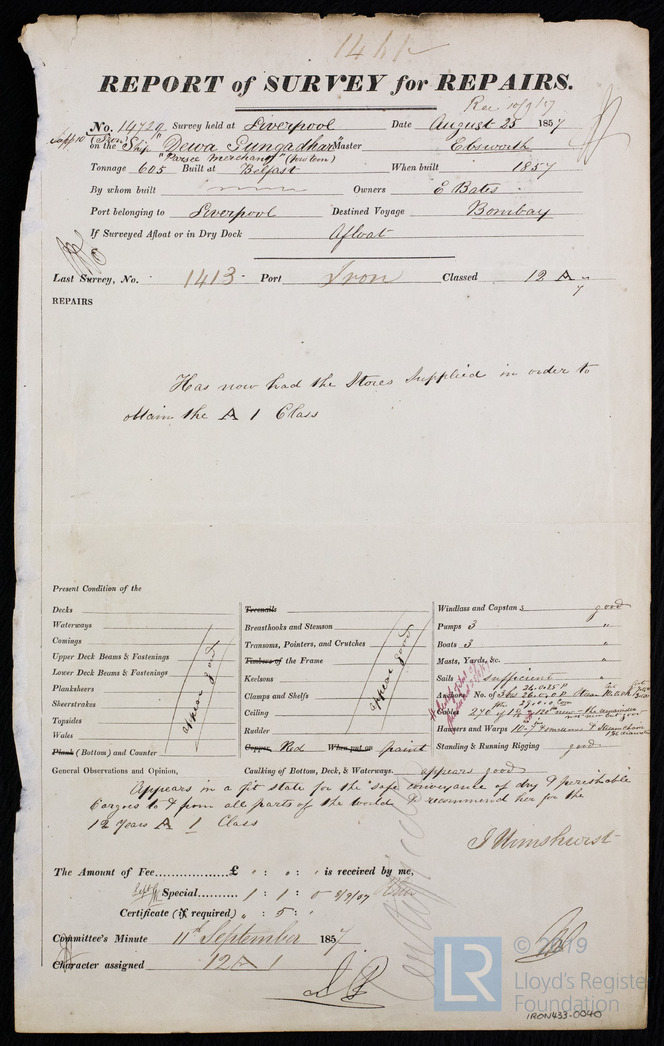 REPORT of SURVEY for REPAIRS.
Rec 10/9/57
No. 14729 Survey held at Liverpool Date August 25 1857
on the Ship "Dewa Gungadhar" Master Ebsworth
"Parsee Merchant"
Tonnage 605 Built at Belfast When built 1857
By whom built Owners E Bates
Port belonging to Liverpool Destined Voyage Bombay
If Surveyed Afloat or in Dry Dock Afloat
Last Survey, No. 1413 Port Iron Classed 12 A
REPAIRS
Has now had the Stores Supplied in order to
obtain the A 1 Class
Present Condition of the
Decks
Waterways
Comings
Upper Deck Beams & Fastenings
Lower Deck Beams & Fastenings
Planksheers
Sheerstrakes
Topsides
Wales
Plank (Bottom) and Counter
appear good
Treenails
Breasthooks and Stemson
Transoms, Pointers, and Crutches
Timbers of the Frame
Keelsons
Clamps and Shelfs
Ceiling
Rudder
Copper, Red When put on paint
appear good
Windlass and Capstans good
Pumps 3 "
Boats 3 "
Masts, Yards, &c. "
Sails sufficient
Anchors No. of
Cables 270
Hawsers and Warps
Standing & Running Rigging good
General Observations and Opinion, Caulking of Bottom, Deck, & Waterways. appears good
Appears in a fit state for the safe conveyance of dry & perishable
Cargoes to & from all parts of the world & recommend her for the
12 Years A 1 Class
The Amount of Fee £ " : " : " is received by me,
Special 1 : 1 : 0
Certificate (if required) " : 5 : "
Committee's Minute 11th September 1857
Character assigned 12 A 1
LR
© 2019
Lloyd's Register
Foundation
IRON433-0040